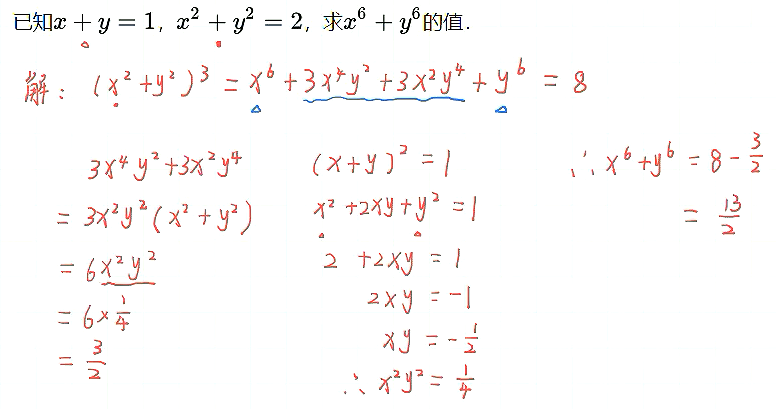 已知x + y = 1，x² + y² = 2，求x⁶ + y⁶的值.
解：(x²+y²)³ = x⁶ + 3x⁴y² + 3x²y⁴ + y⁶ = 8
3x⁴y²+3x²y⁴
= 3x²y²(x²+y²)
= 6x²y²
= 6×1/4
= 3/2
(x+y)² = 1
x²+2xy+y² = 1
2 +2xy = 1
2xy = -1
xy = -1/2
∴ x²y² = 1/4
∴ x⁶+y⁶ = 8 - 3/2
= 13/2